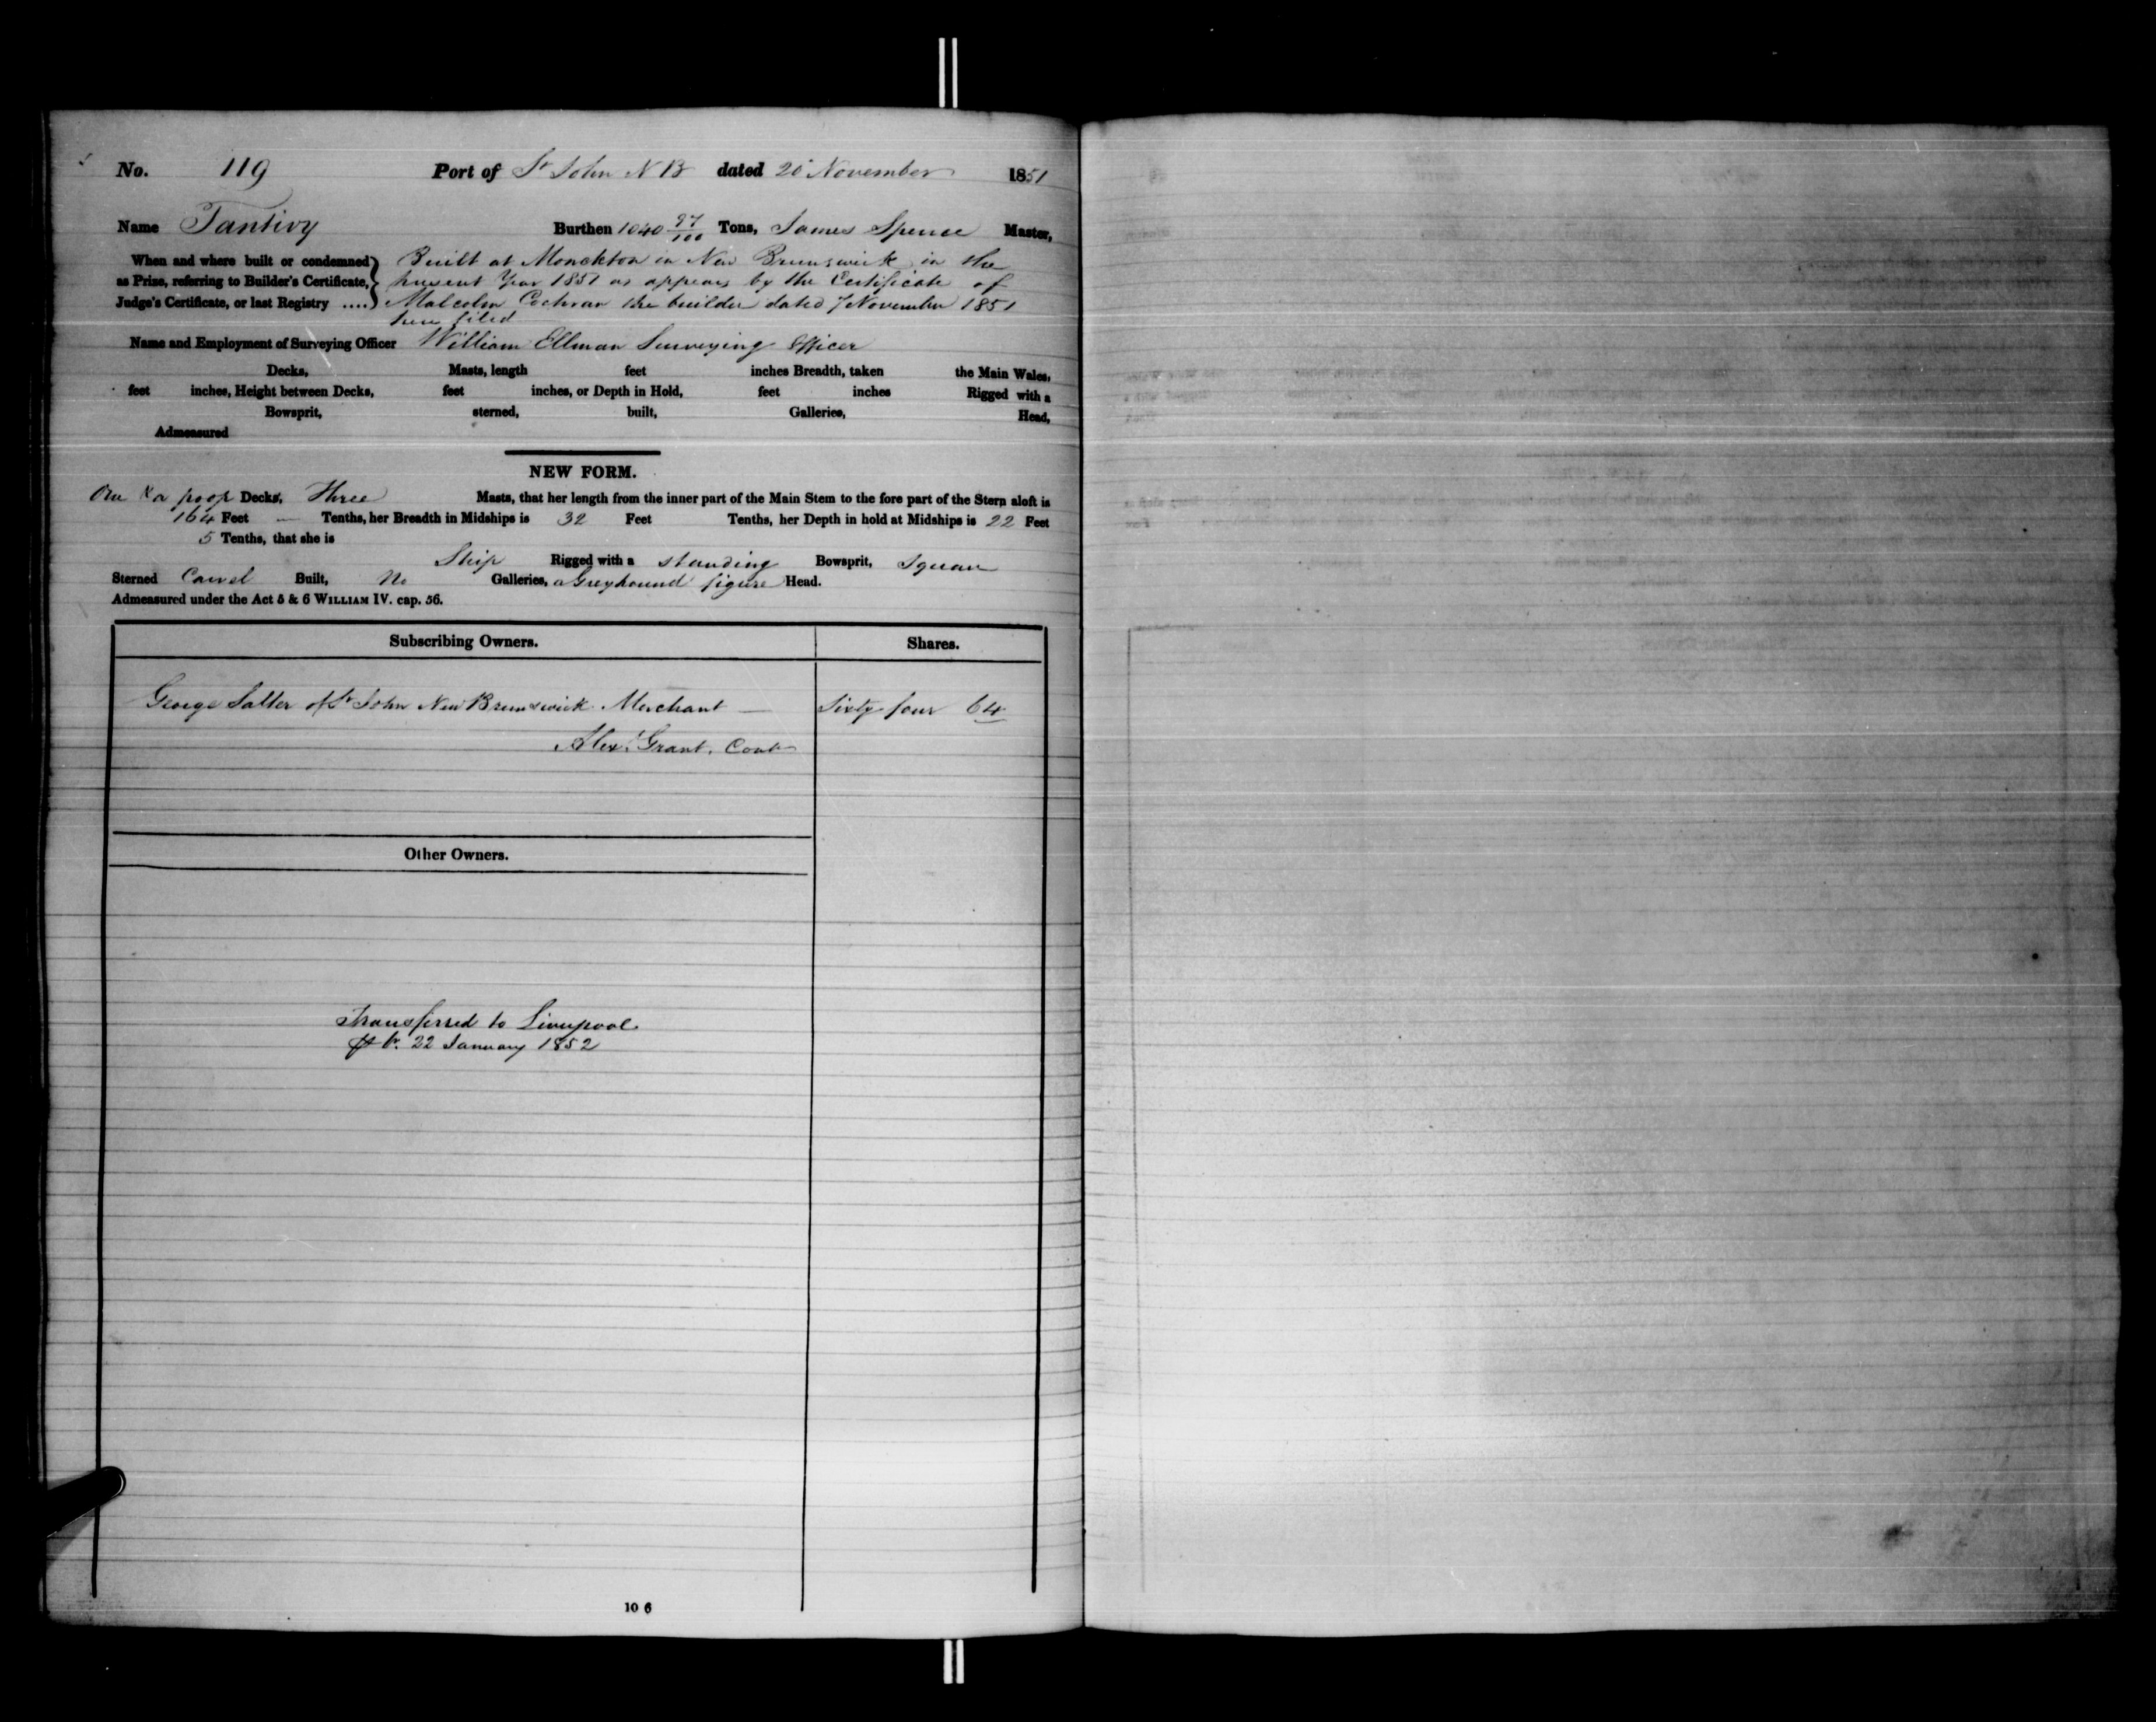 No. 119 Port of St John N B dated 20 November 1851
Name Tantivy Burthen 1040 97/100 Tons, James Spence Master,
When and where built or condemned as Prize, referring to Builder's Certificate, Judge's Certificate, or last Registry ....
Built at Monckton in New Brunswick in the
present Year 1851 as appears by the Certificate of
Malcolm Cochran the builder dated 7 November 1851
here filed
Name and Employment of Surveying Officer William Ellman Surveying Officer
Decks, Masts, length feet inches Breadth, taken the Main Wales,
feet inches, Height between Decks, feet inches, or Depth in Hold, feet inches Rigged with a
Bowsprit, sterned, built, Galleries, Head,
Admeasured
NEW FORM.
One & a poop Decks, Three Masts, that her length from the inner part of the Main Stem to the fore part of the Stern aloft is
164 Feet — Tenths, her Breadth in Midships is 32 Feet Tenths, her Depth in hold at Midships is 22 Feet
5 Tenths, that she is
Ship Rigged with a standing Bowsprit, Square
Sterned Carvel Built, No Galleries, a Greyhound figure Head.
Admeasured under the Act 5 & 6 WILLIAM IV. cap. 56.
Subscribing Owners. Shares.
George Salter of St John New Brunswick Merchant — Sixty four 64
Alexr Grant. Cont
Other Owners.
Transferred to Liverpool
22 January 1852
10 6